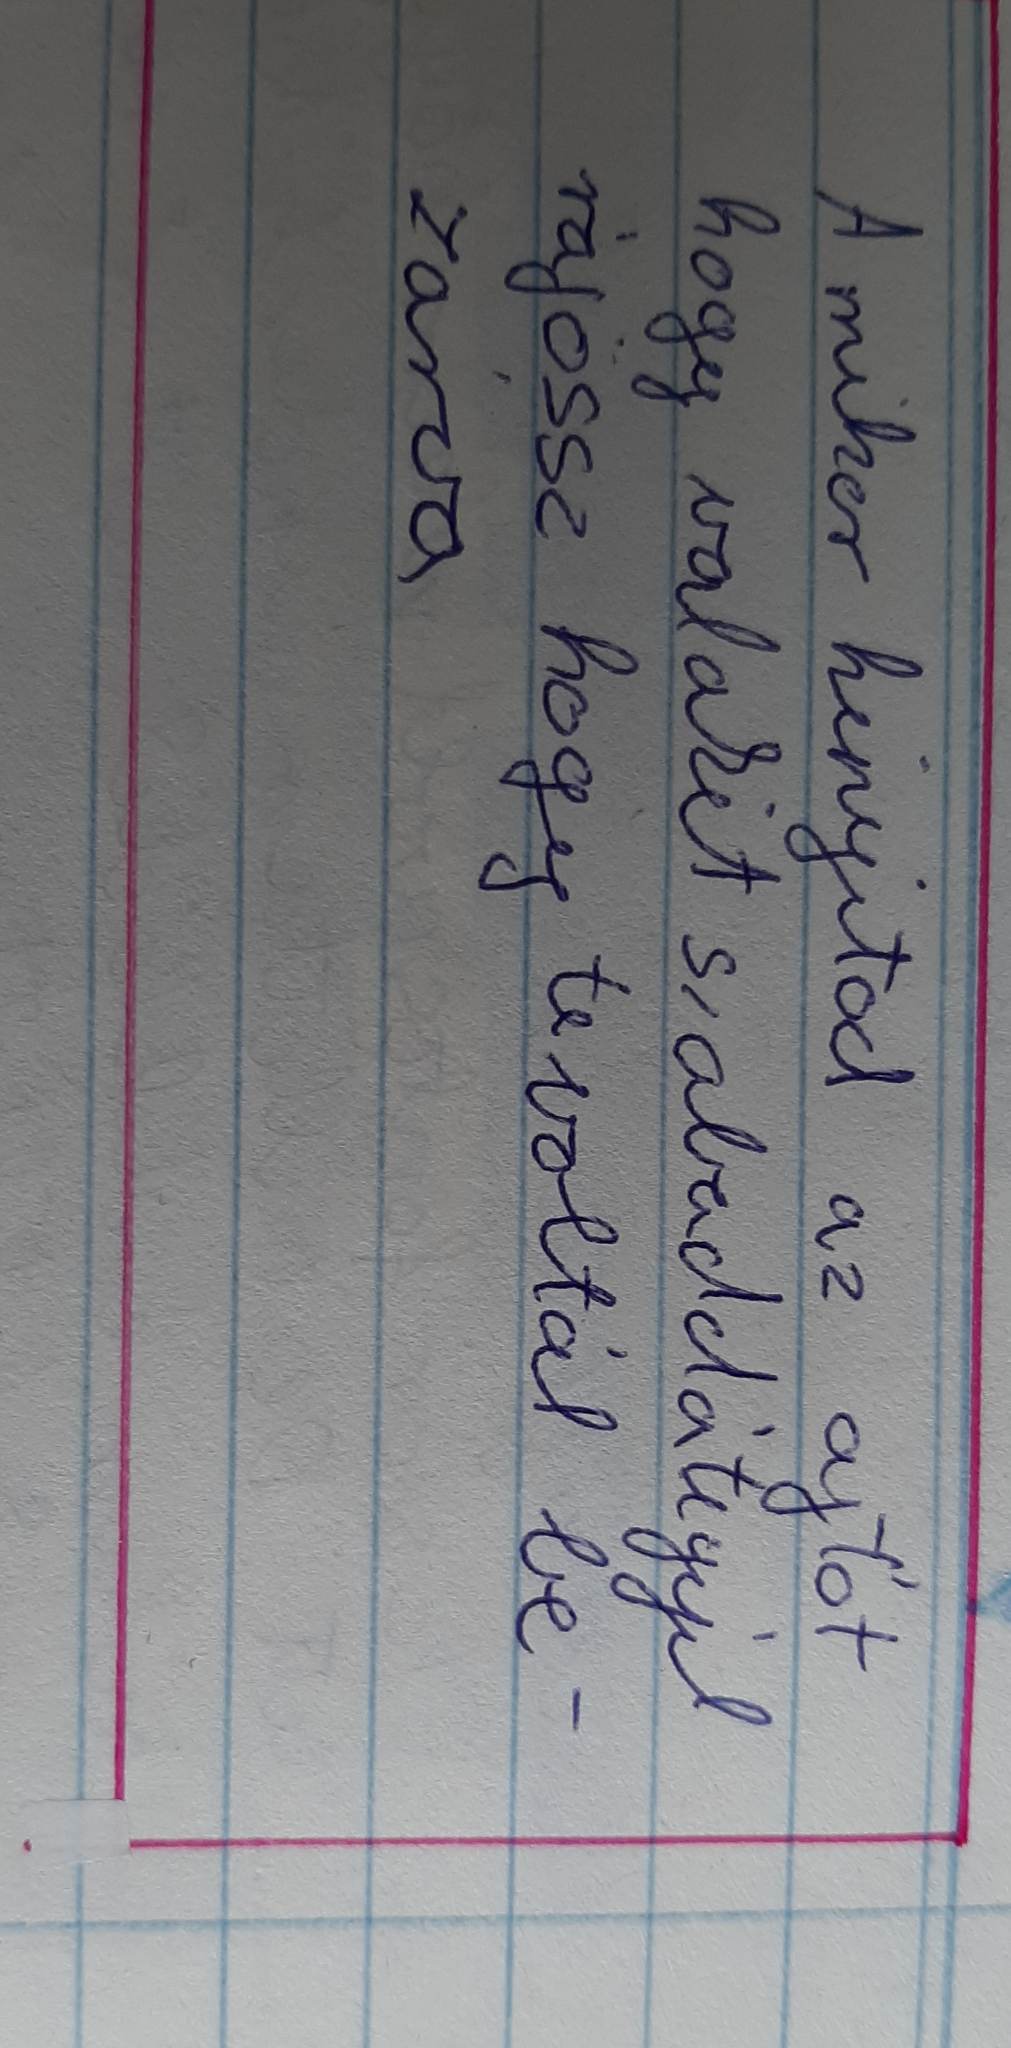 Amikor kinyitod az ajtót
hogy valakit szabaddátegyél
rájössz hogy te voltál be-
zárva